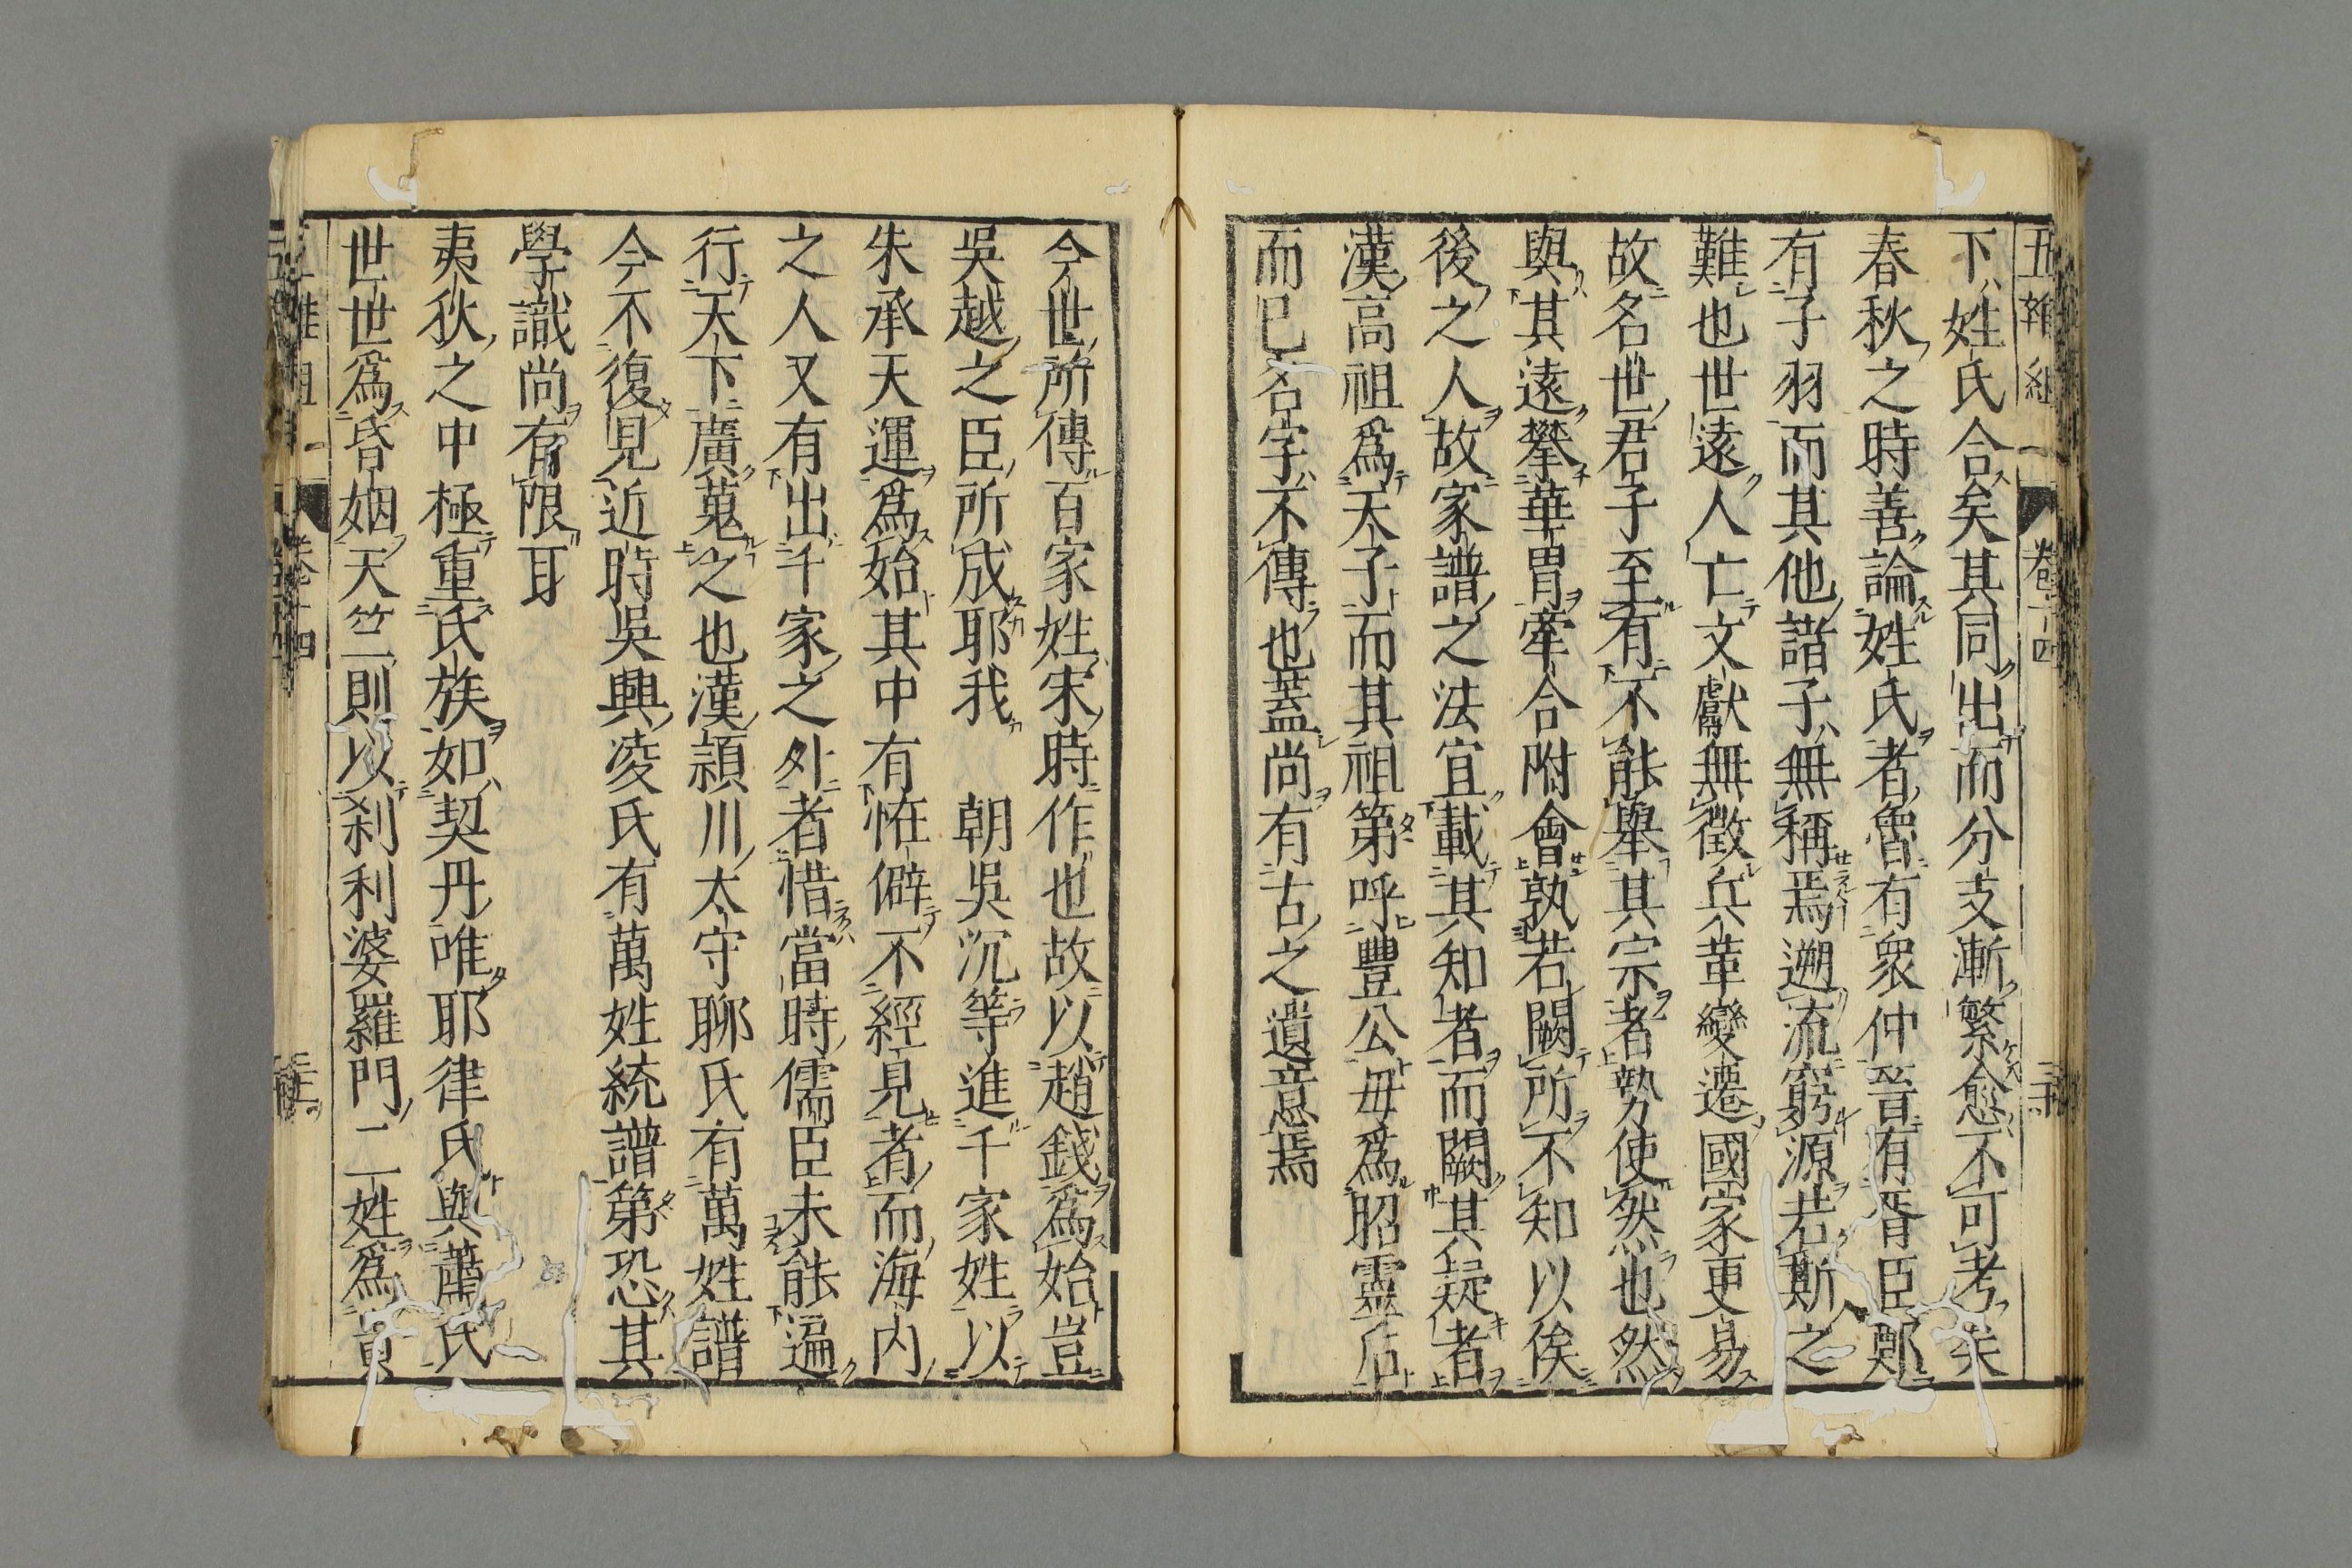 五雜組 卷十四
下姓氏合矣其同出而分支漸繁愈不可考矣
春秋之時善論姓氏者魯有衆仲晉有胥臣鄭
有子羽而其他諸子無稱焉遡流窮源若斯之
難也世遠人亡文獻無徵兵革變遷國家更易
故名世君子至有不能舉其宗者勢使然也然
與其遠攀華胄牽合附會孰若闕所不知以俟
後之人故家譜之法宜載其知者而闕其疑者
漢高祖爲天子而其祖第呼豐公母爲昭靈后
而已名字不傳也蓋尚有古之遺意焉
今世所傳百家姓宋時作也故以趙錢爲始豈
吳越之臣所成耶我 朝吳沉等進千家姓以
朱承天運爲始其中有恠僻不經見者而海内
之人又有出千家之外者惜當時儒臣未能遍
行天下廣蒐之也漢潁川太守聊氏有萬姓譜
今不復見近時吳興凌氏有萬姓統譜第恐其
學識尚有限耳
夷狄之中極重氏族如契丹唯耶律氏與蕭氏
世世爲昏姻天竺則以刹利婆羅門二姓爲貴